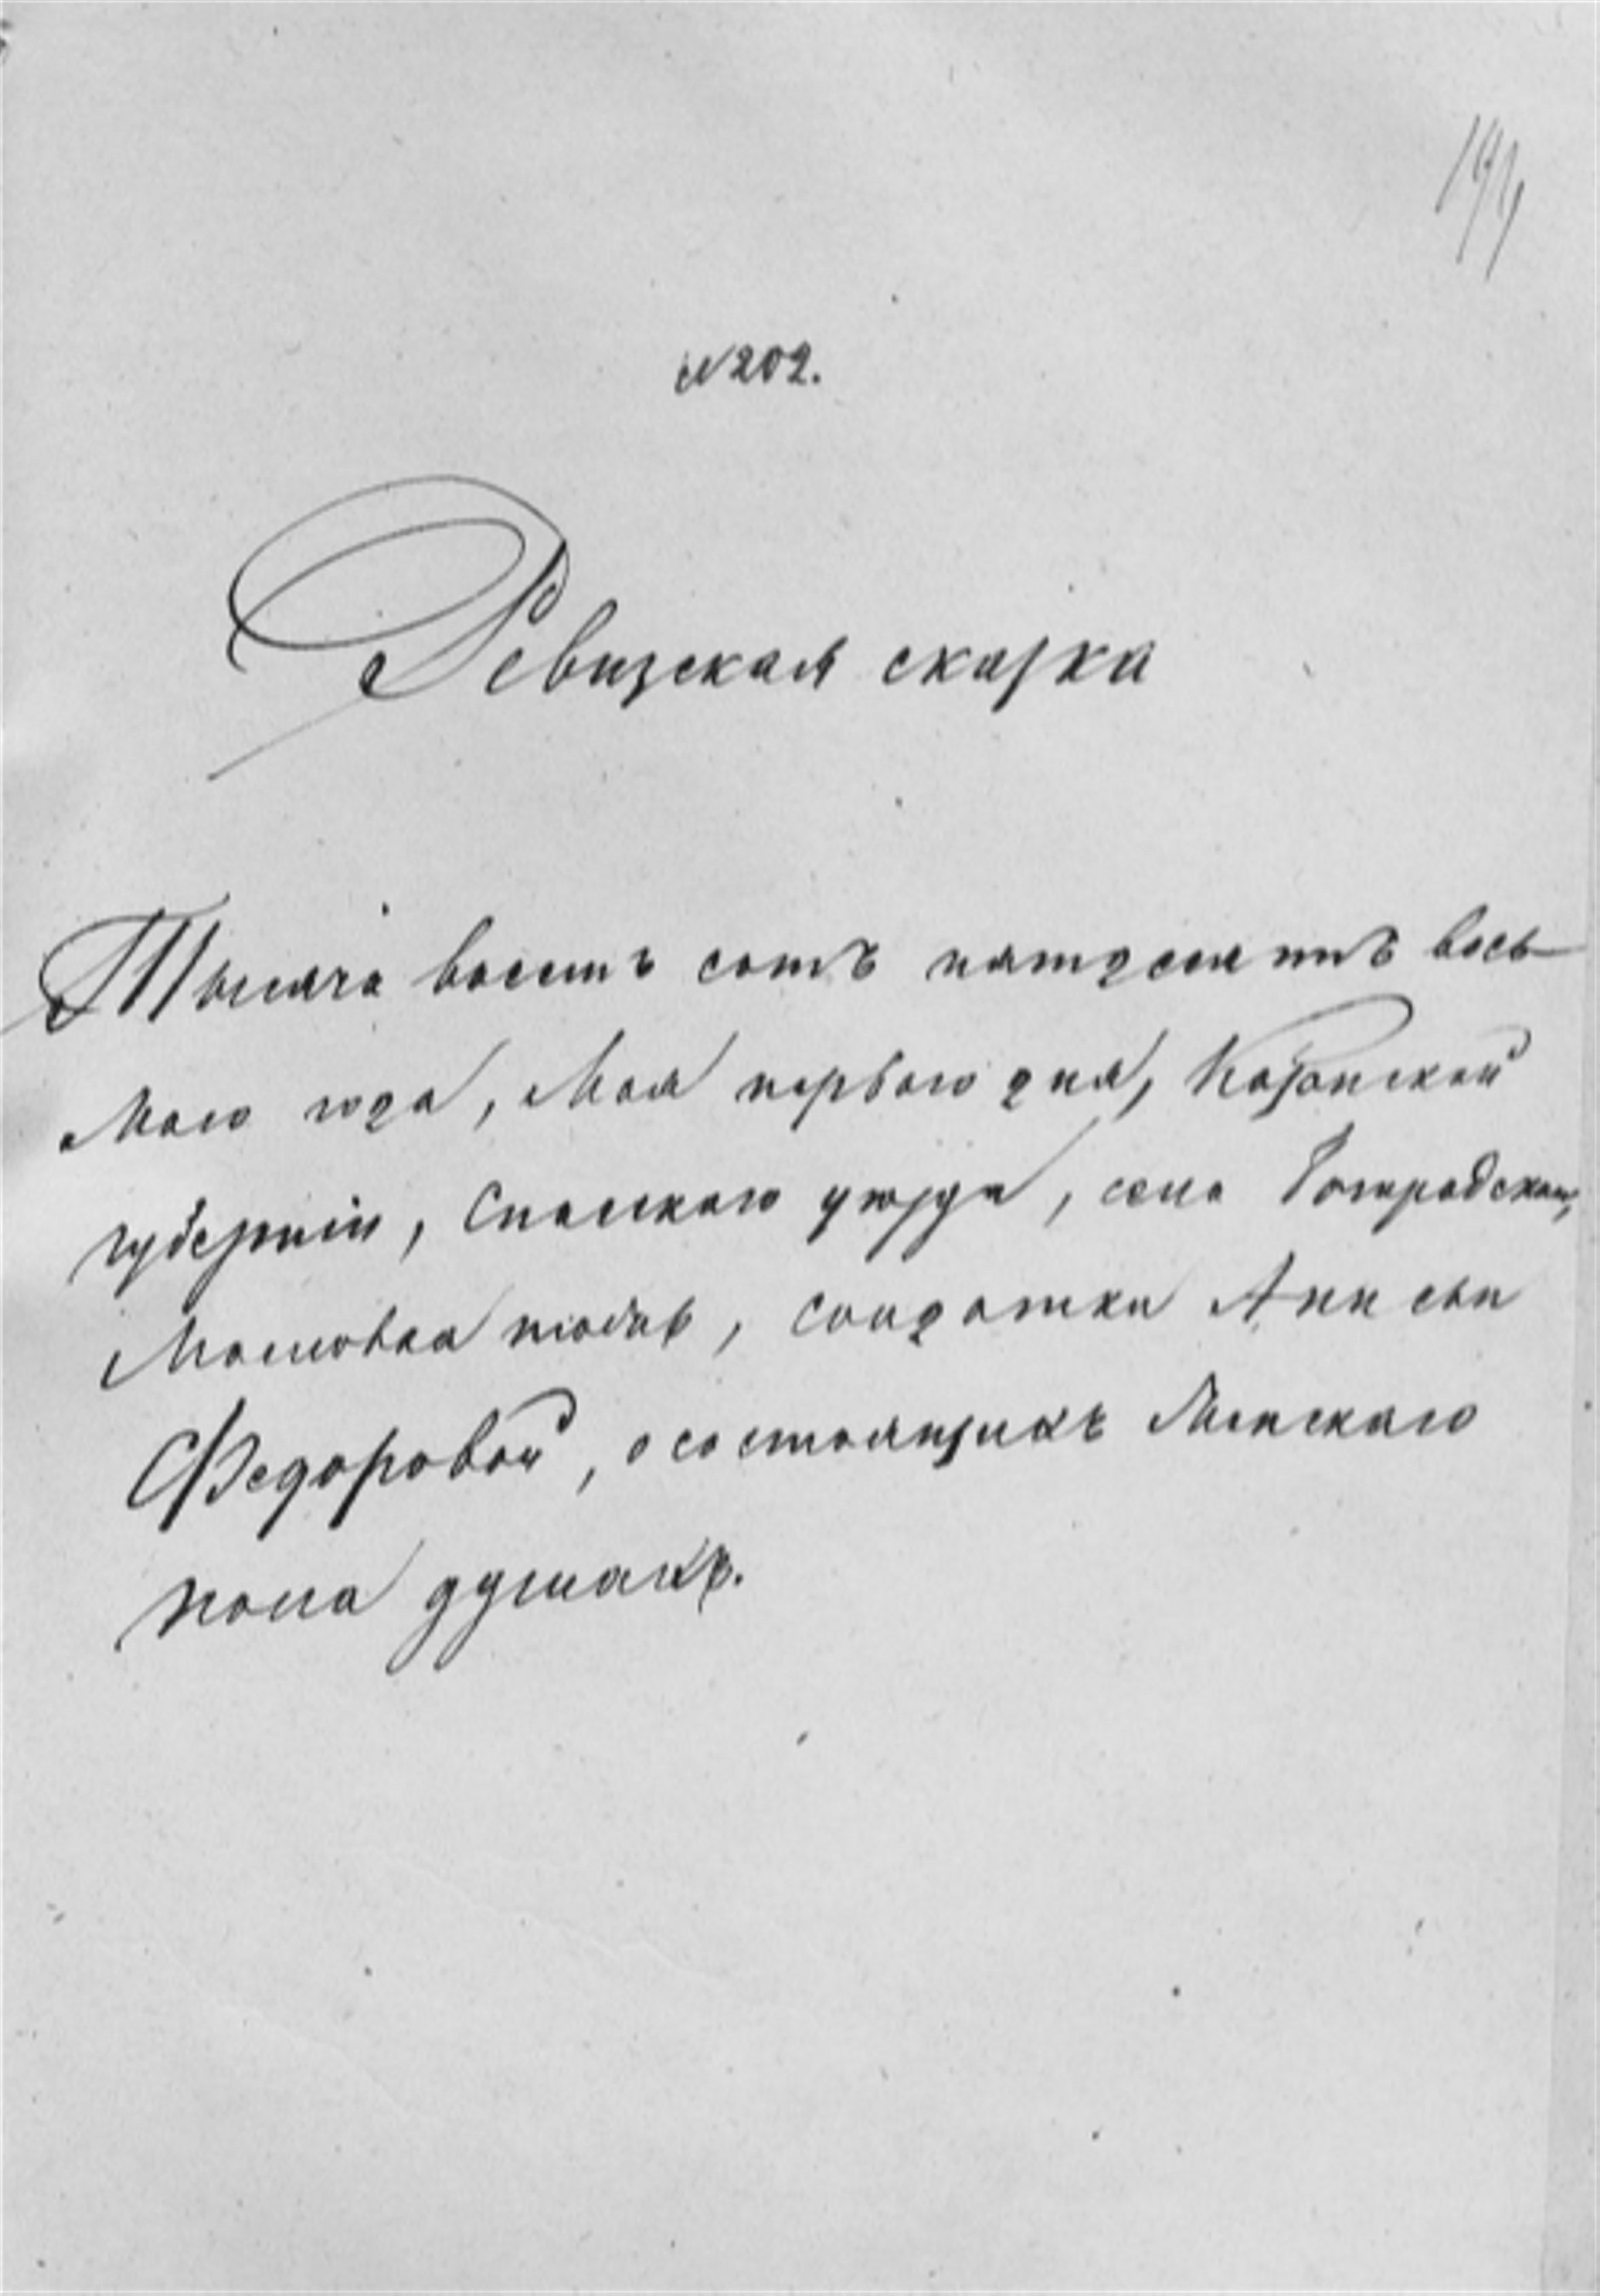 194
№ 202.
Ревизская сказка
Тысяча восемь сотъ пятдесятъ вось-
маго года, Мая перваго дня, Казанской
губерніи, Спаскаго уѣзда, села
Солдатки Анисьи
Федоровой, о состоящихъ Женскаго
пола душахъ.